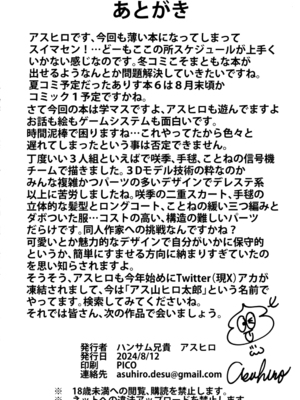 あとがき
アスヒロです、今回も薄い本になってしまって
スイマセン！…どーもここの所スケジュールが上手く
いかない感じなのです。冬コミこそまともな本が
出せるようなんとか問題解決していきたいですね。
夏コミ予定だったありす本６は８月末頃か
コミック１予定ですかね。
さて今回の本は学マスですよ、アスヒロも遊んでますよ
お話も絵もゲームシステムも面白いです。
時間泥棒で困りますね…これやってたから色々と
遅れてしまったという事は否定できません。
丁度いい３人組といえばで咲季、手毬、ことねの信号機
チームで描きました。３Dモデル技術の粋なのか
みんな複雑かつパーツの多いデザインでデレステ系
以上に苦労しましたね。咲季の二重スカート、手毬の
立体的な髪型とロングコート、ことねの緩い三つ編みと
ダボついた服…コストの高い、構造の難しいパーツ
だらけです。同人作家への挑戦なんですかね？
可愛いとか魅力的なデザインで自分がいかに保守的
というか、簡単にすませる方向に納まりすぎていたの
を思い知らされますよ。
そうそう、アスヒロも今年始めにTwitter（現X）アカが
凍結されまして、今は「アス山ヒロ太郎」という名前で
やってます。検索してみてくださいね。
それでは皆さん、次の作品で会いましょう。
発行者 ハンサム兄貴 アスヒロ
発行日 2024/8/12
印刷 PICO
連絡先 asuhiro.desu@gmail.com
asuhiro
※ 18歳未満への閲覧、購読を禁止します。
※ ネットへの違法アップロードを禁止します。